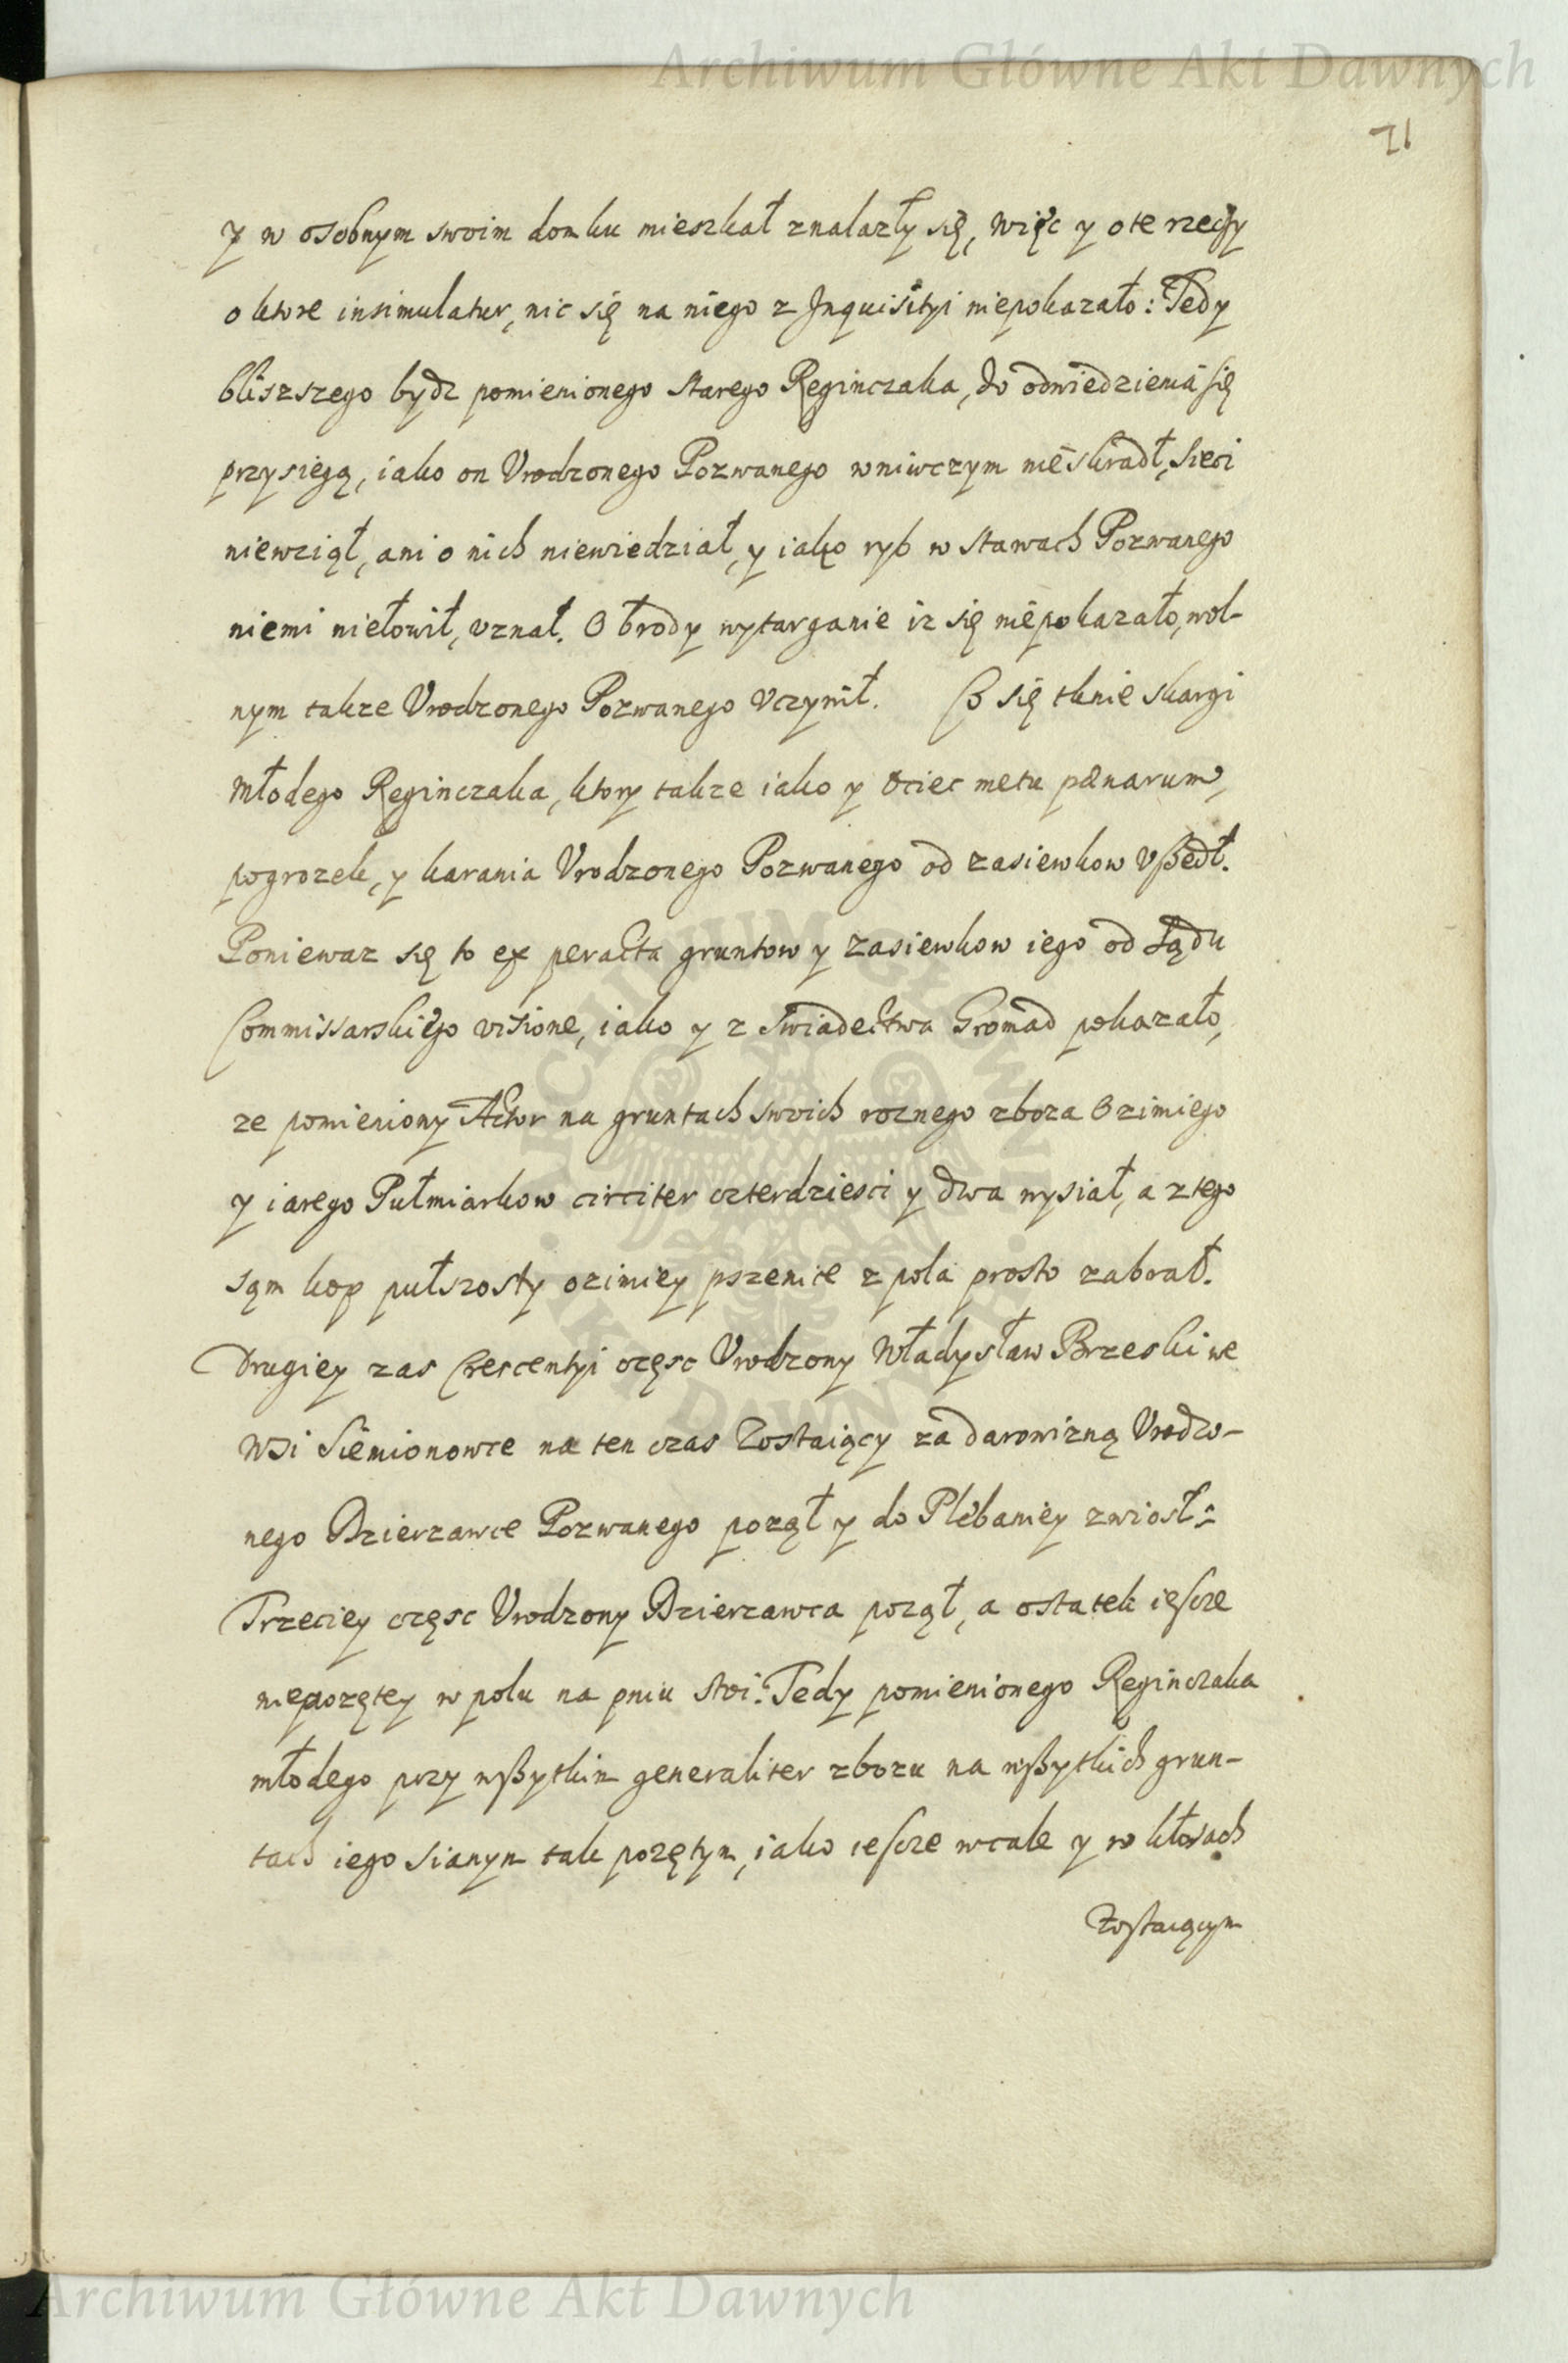 Archiwum Główne Akt Dawnych
71
y w osobnym swoim domku mieszkał znalazły się, więc y o te rzeczy
o ktore insimulatur, nic się na niego z Inquisityi niepokazało: Tedy
bliszszego bydz pomienionego starego Reginczaka, do odwiedzienia się
przysięgą, iako on Vrodzonego Pozwanego wniwczym nieskradł, sieci
niewziął, ani o nich niewiedział, y iako ryb w stawach Pozwanego
niemi niełowił, vznał. O brody wytarganie iz się niepokazało, wol-
nym takze Vrodzonego Pozwanego Vczynił. Co się tknie skargi
Młodego Reginczaka, ktory takze iako y Ociec metu pænarum,
pogrozek, y karania Vrodzonego Pozwanego od zasiewkow Vßedł.
Poniewaz się to ex peracta gruntow y zasiewkow iego od Sądu
Commissarskiego visione, iako y z Swiadectwa Gromad pokazało,
ze pomieniony Actor na gruntach swoich roznego zboza Ozimiego
y iarego Pułmiarkow circiter czterdziesci y dwa wysiał, a z tego
sąm kop pułszosty ozimiey pszenice z pola prosto zabrał.
Drugiey zas Crescentyi częsc Vrodzony Władysław Brzeski we
Wsi Siemionowce na ten czas Zostaiący za darowizną Vrodzo-
nego Dzierzawce Pozwanego pozął y do Plebaniey zwiosł:
Trzeciey częsc Vrodzony Dzierzawca pozął, a ostatek iescze
niepozętey w polu na pniu stoi: Tedy pomienionego Reginczaka
młodego przy wßytkim generaliter zbozu na wßytkich grun-
tach iego sianym tak pozętym, iako iescze wcale y w kłosach
Zostaiącym
ARCHIWUM GŁÓWNE AKT DAWNYCH
Archiwum Główne Akt Dawnych